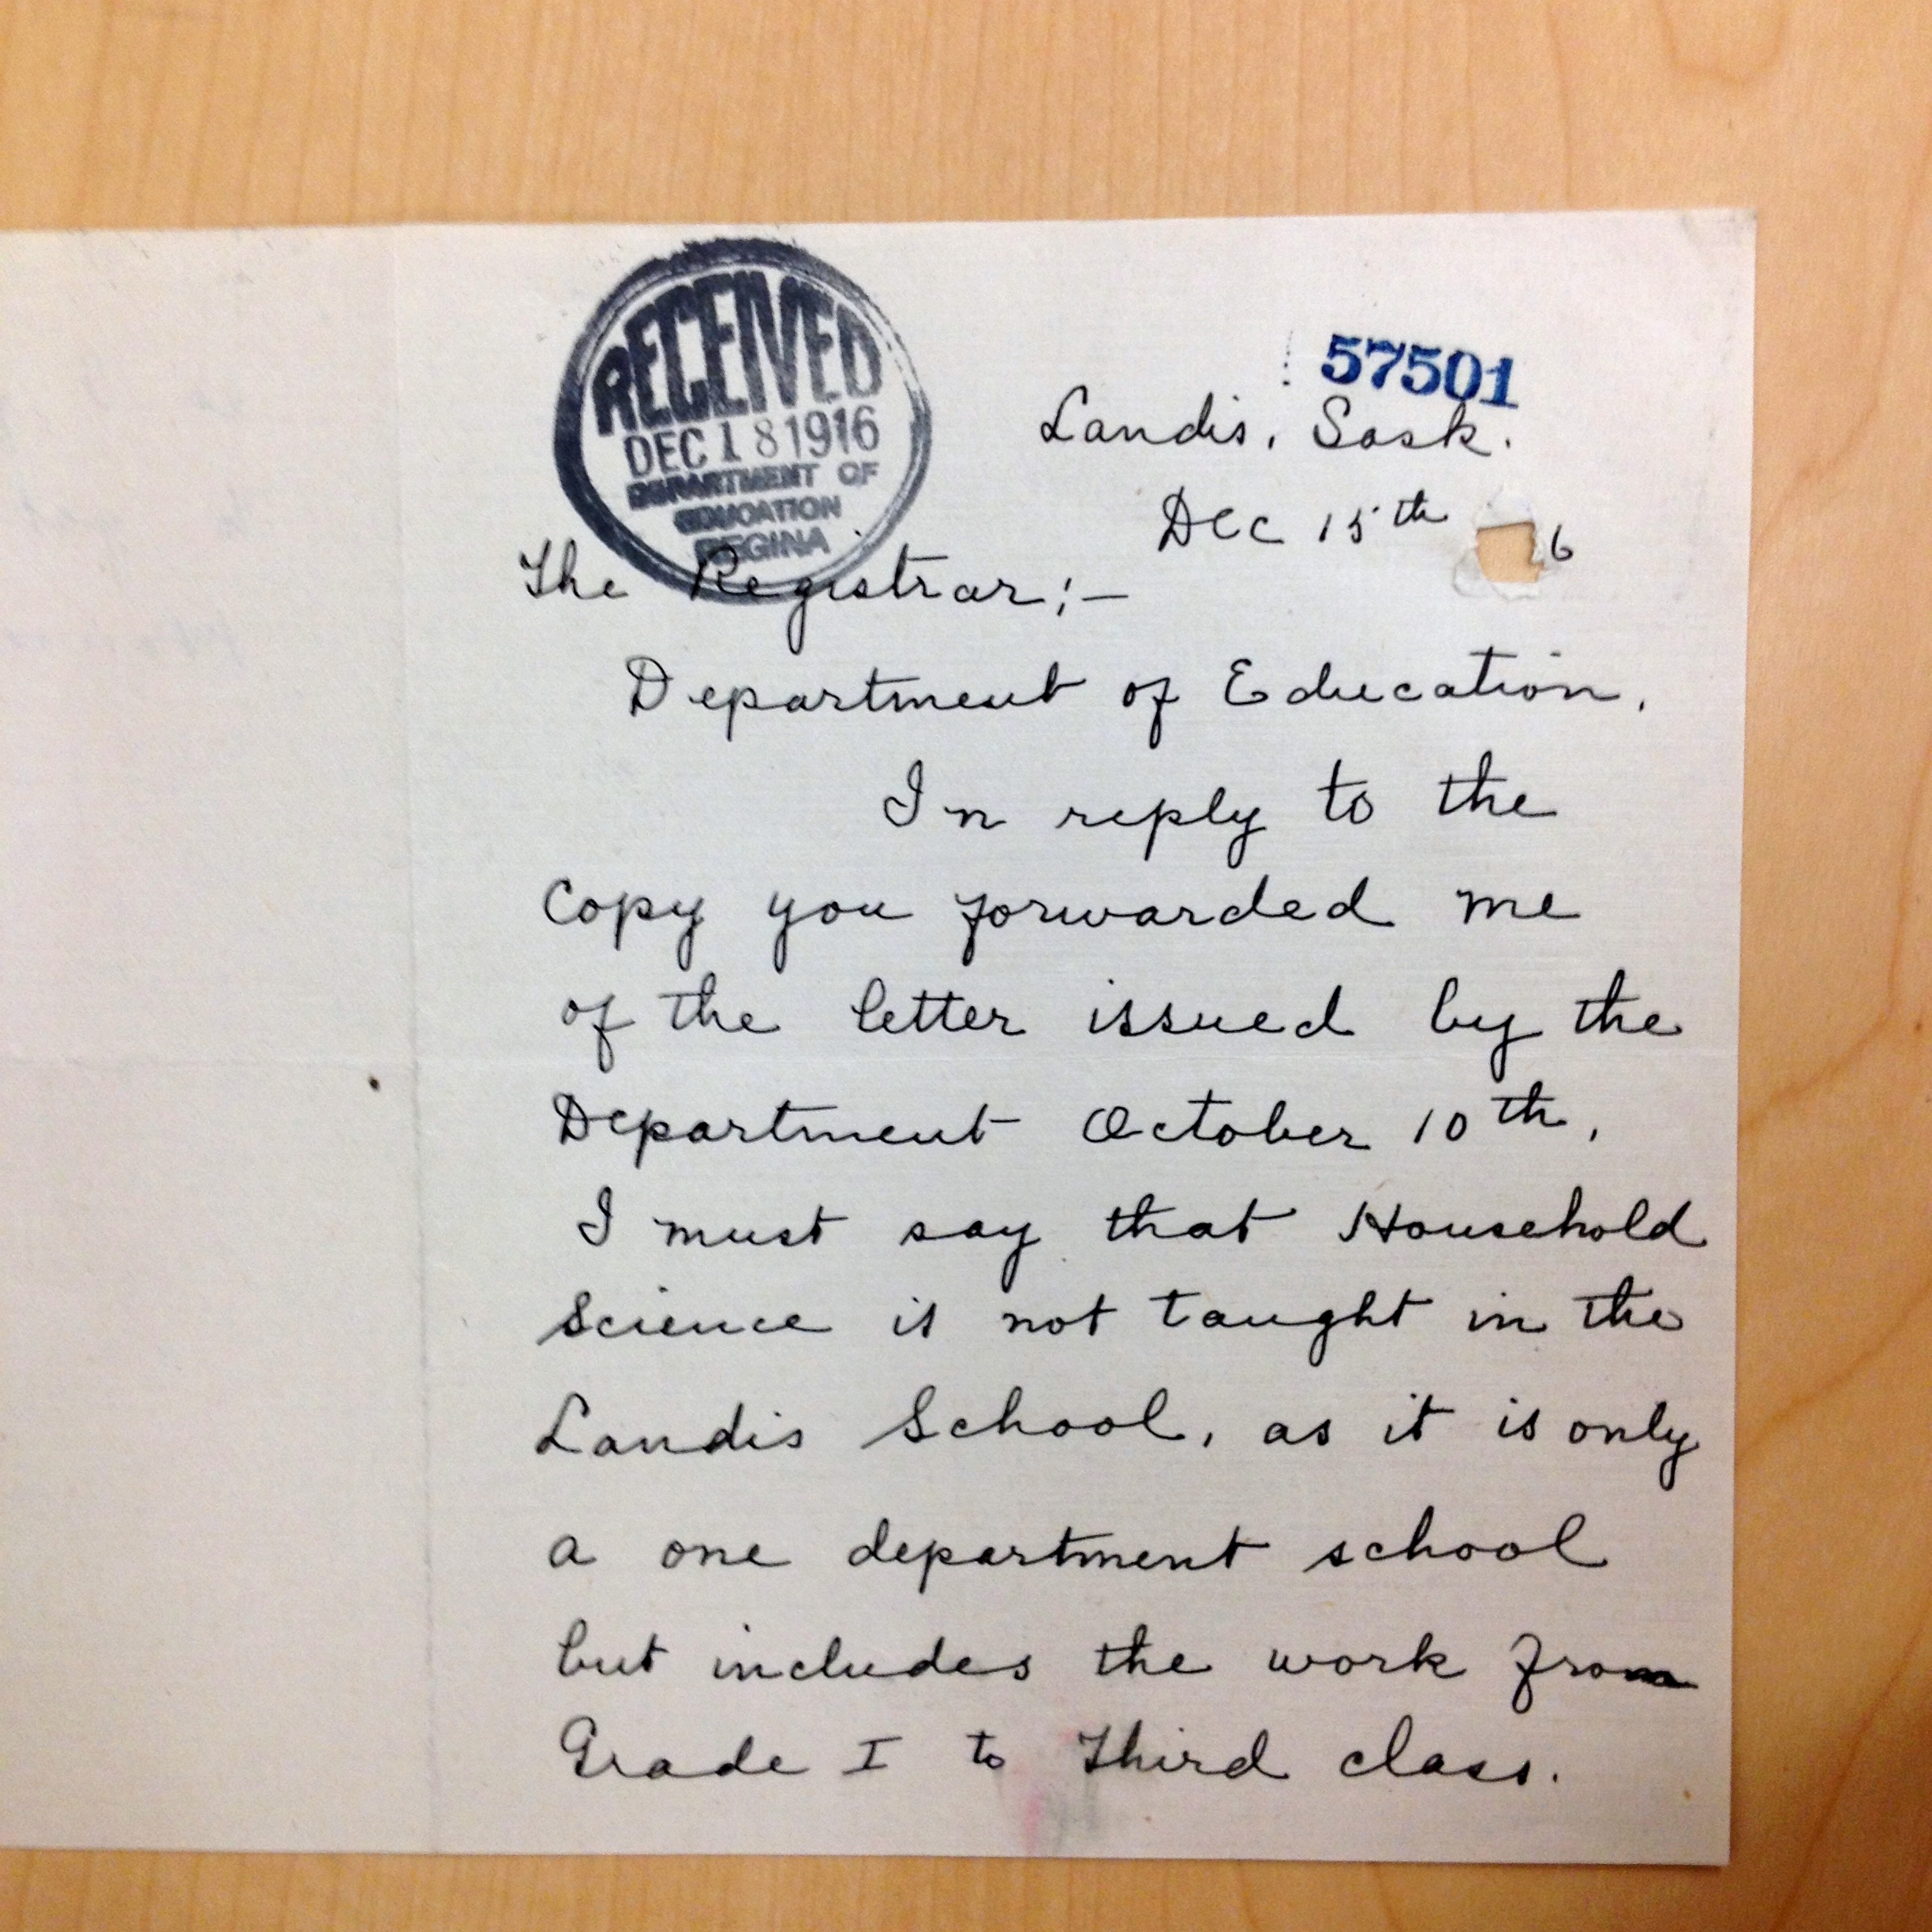 RECEIVED
DEC 18 1916
DEPARTMENT OF
EDUCATION
REGINA
57501
Landis, Sask.
Dec 15th 6
The Registrar:-
Department of Education,
In reply to the
copy you forwarded me
of the letter issued by the
Department October 10th,
I must say that Household
Science is not taught in the
Landis School, as it is only
a one department school
but includes the work from
Grade I to Third class.